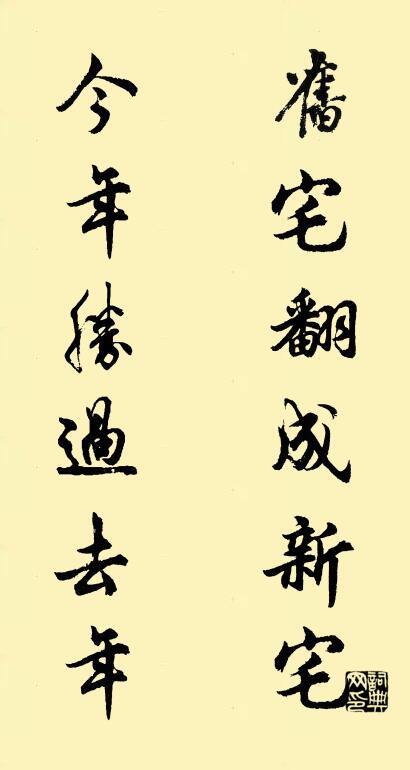 舊宅翻成新宅
今年勝過去年
詞典網印